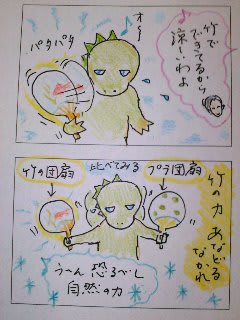 ♪竹で
できてるから
涼しいわよ
オ〜
パタパタ
竹の力 あなどる
なかれ
プラ団扇
比べてみる
竹の団扇
うーん 恐るべし
自然の力